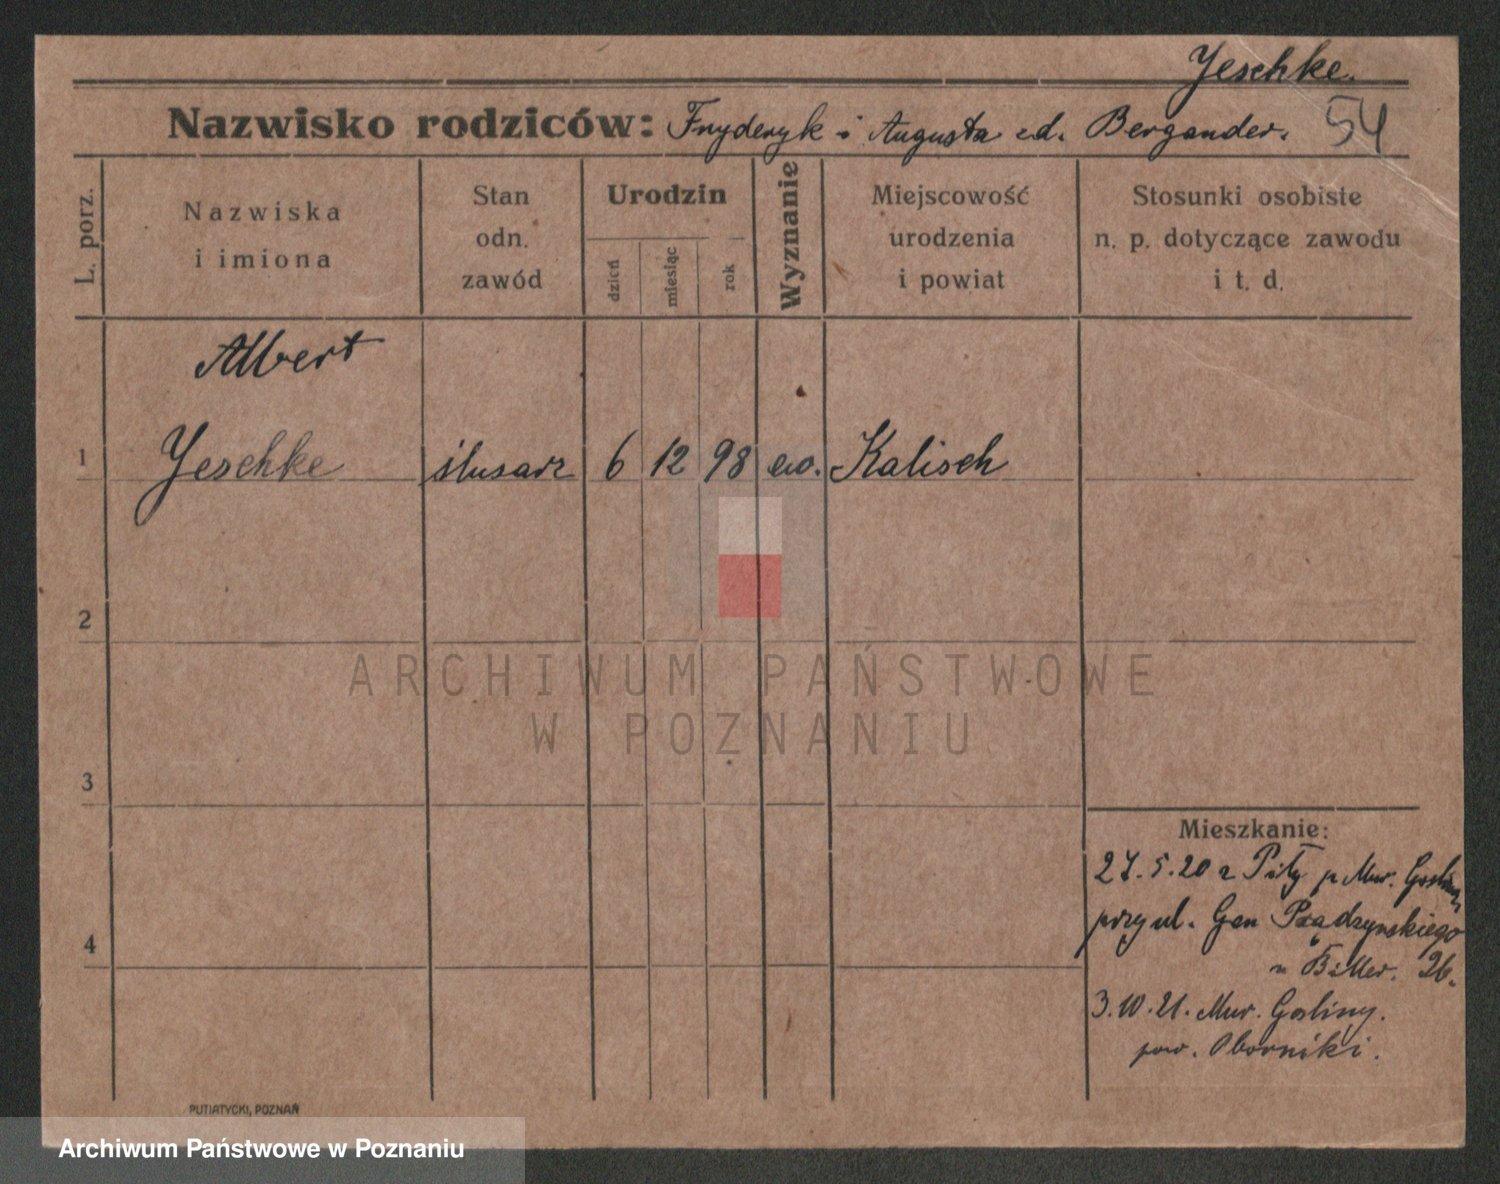 Jeschke.
Nazwisko rodziców: Fryderyk i Augusta zd. Bergander. 54
L. porz.
Nazwiska
i imiona
Stan
odn.
zawód
Urodzin
dzień
miesiąc
rok
Wyznanie
Miejscowość
urodzenia
i powiat
Stosunki osobiste
n. p. dotyczące zawodu
i t. d.
Albert
1 Jeschke ślusarz 6 12 98 ew. Kalisch
2
3
4
Mieszkanie:
27.5.20 z Piły p Mur. Gośliny
przy ul. Gen Prądzyńskiego
u 26.
3.10.21. Mur. Gośliny.
pow. Oborniki.
PUTIATYCKI, POZNAŃ
ARCHIWUM PAŃSTWOWE
W POZNANIU
Archiwum Państwowe w Poznaniu